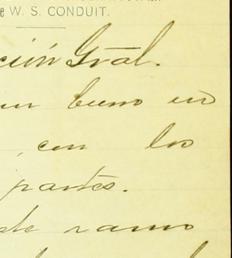 e W. S. CONDUIT.
ción Gral.
un buno en
, con los
partes.
de ramo